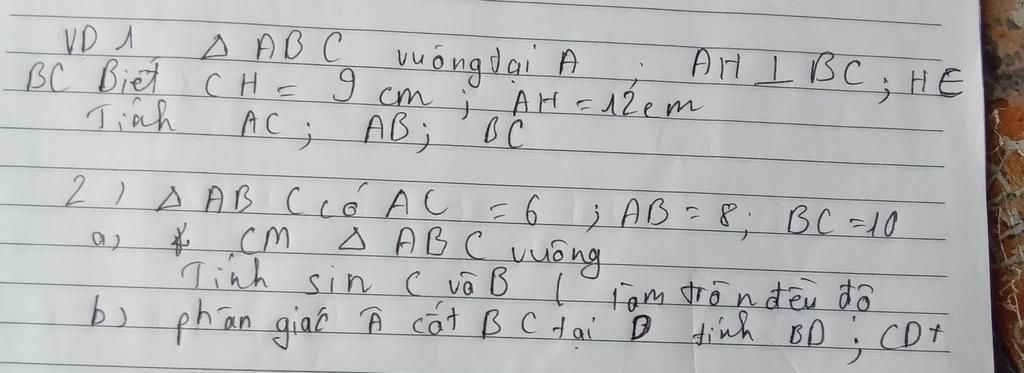 VD 1 Δ ABC vuông tại A ; AH ⊥ BC ; H ∈
BC Biết CH = 9 cm ; AH = 12 cm
Tính AC ; AB ; BC
2) Δ ABC có AC = 6 ; AB = 8 ; BC = 10
a) CM Δ ABC vuông
Tính sin C và B ( làm tròn đều độ
b) phân giác A cắt BC tại D tính BD ; CD